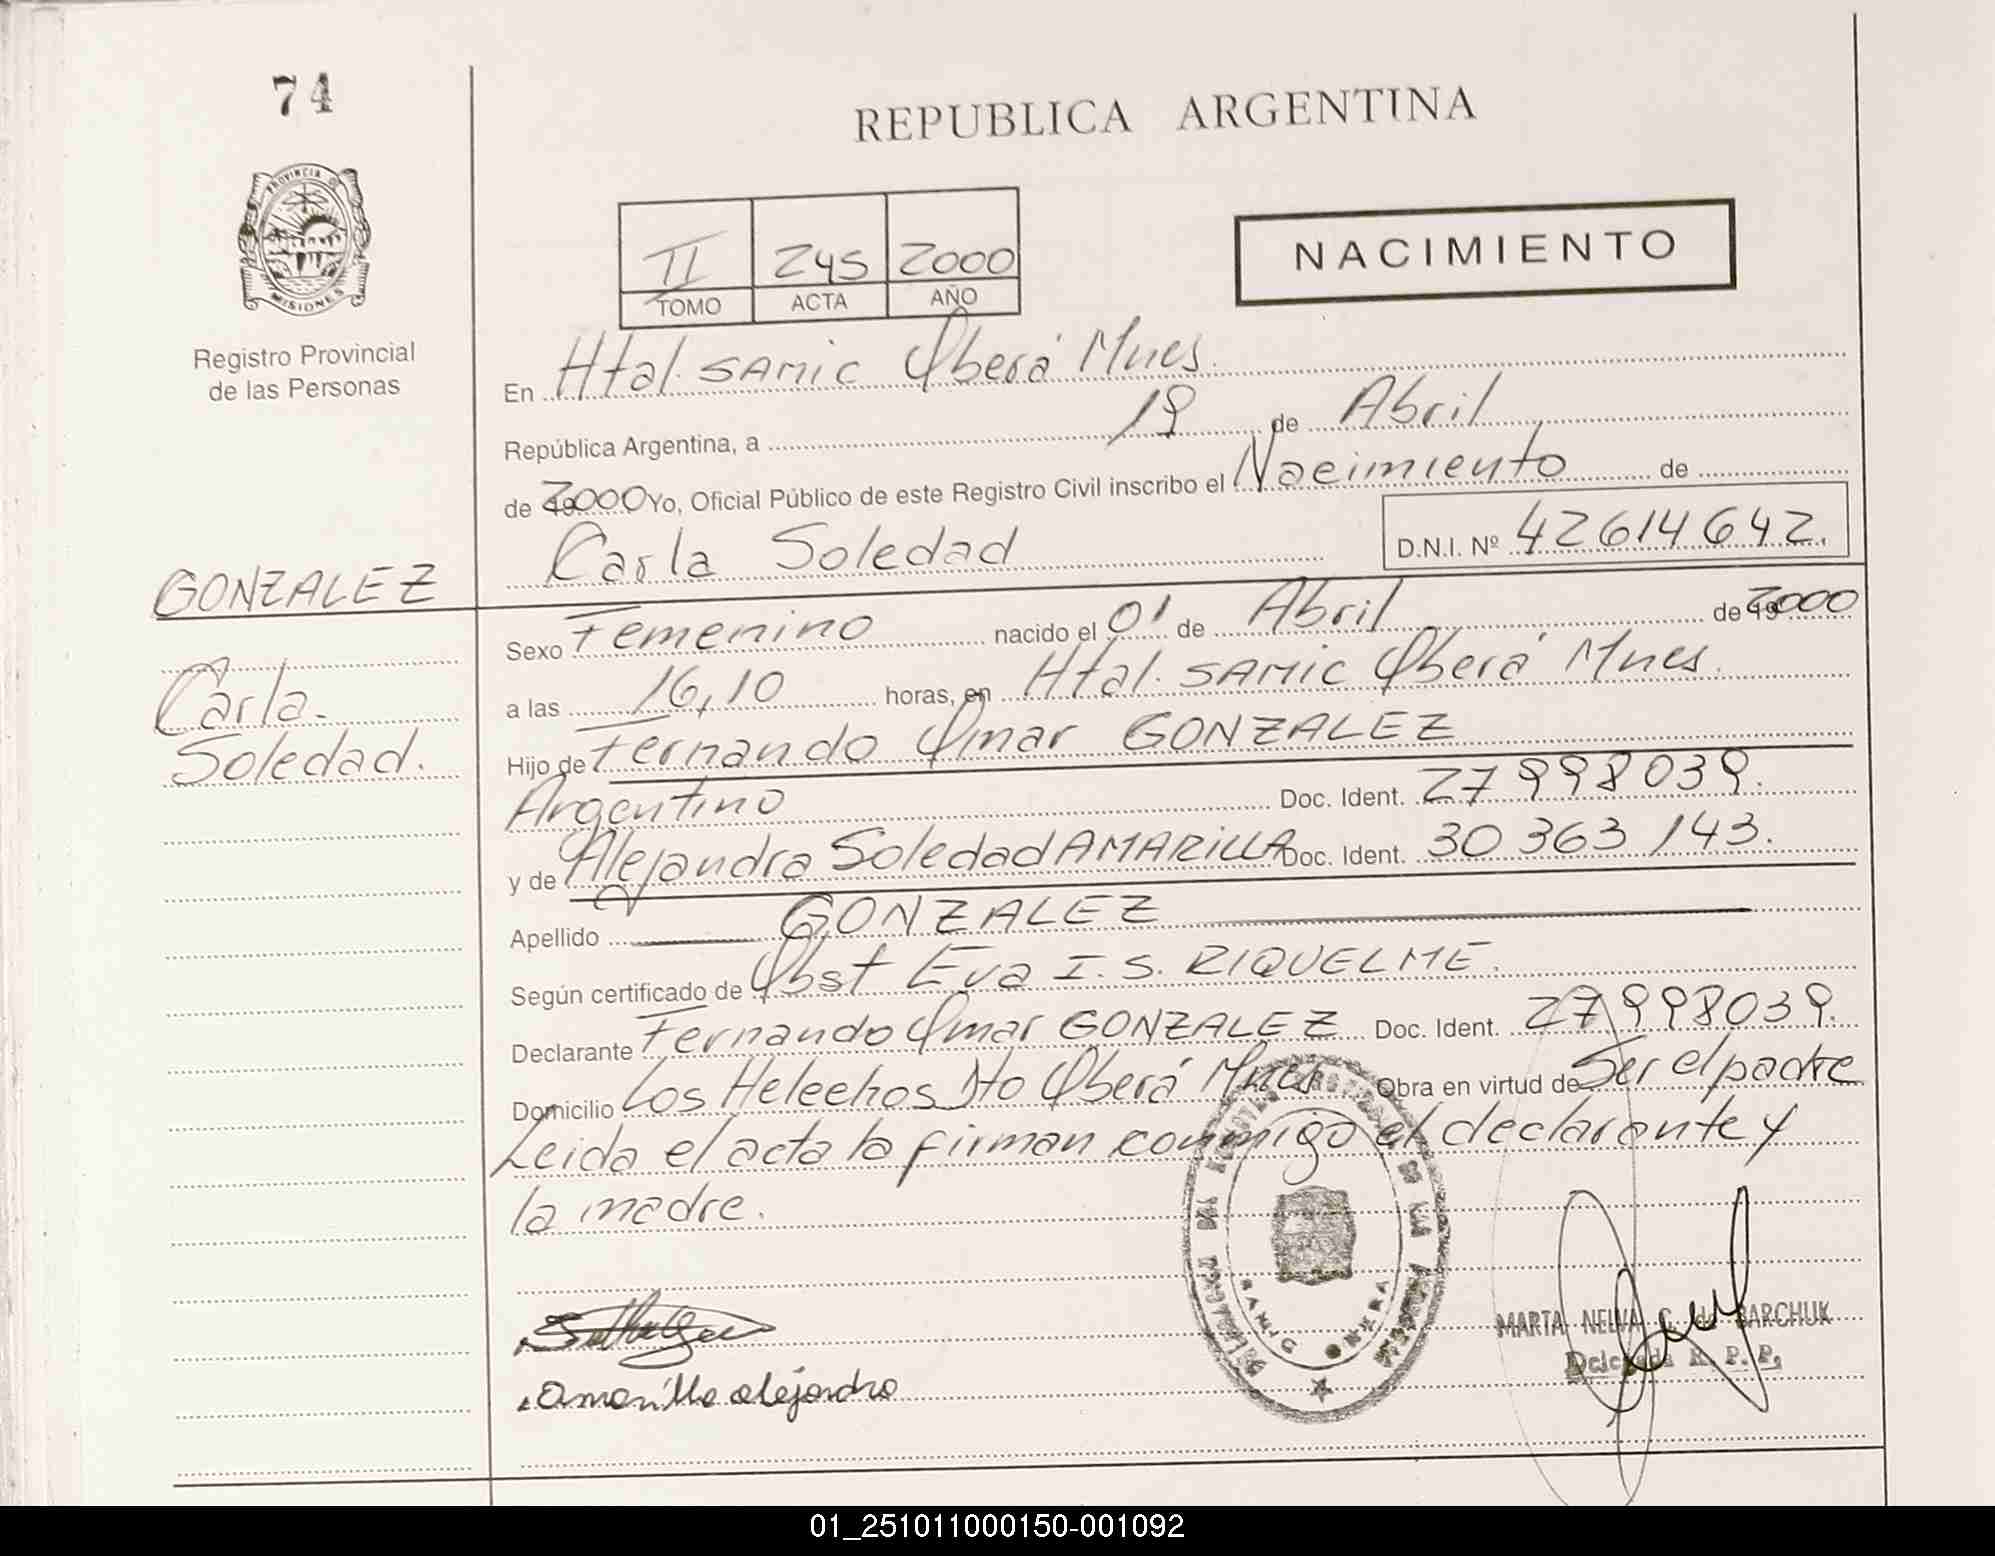 74
REPUBLICA ARGENTINA
PROVINCIA DE
MISIONES
Registro Provincial
de las Personas
II 245 2000
TOMO ACTA AÑO
NACIMIENTO
En Htal. SAMIC Oberá Mnes.
República Argentina, a 19 de Abril
de 2000 Yo, Oficial Público de este Registro Civil inscribo el Nacimiento de
Carla Soledad D.N.I. Nº 42614642.
GONZALEZ
Carla
Soledad.
Sexo Femenino nacido el 01 de Abril de 2000
a las 16,10 horas, en Htal. SAMIC Oberá Mnes.
Hijo de Fernando Omar GONZALEZ
Argentino Doc. Ident. 27998039.
y de Alejandra Soledad AMARILLA Doc. Ident. 30363143.
Apellido GONZALEZ
Según certificado de Obst Eva I. S. RIQUELME.
Declarante Fernando Omar GONZALEZ Doc. Ident. 27998039.
Domicilio Los Helechos Dto Oberá Mnes Obra en virtud de Ser el padre
Leida el acta la firman conmigo el declarante y
la madre.
Amarilla alejandra
SAMIC OBERA
MARTA NELVA C. de BARCHUK
Delegada R. P. P.
01_251011000150-001092